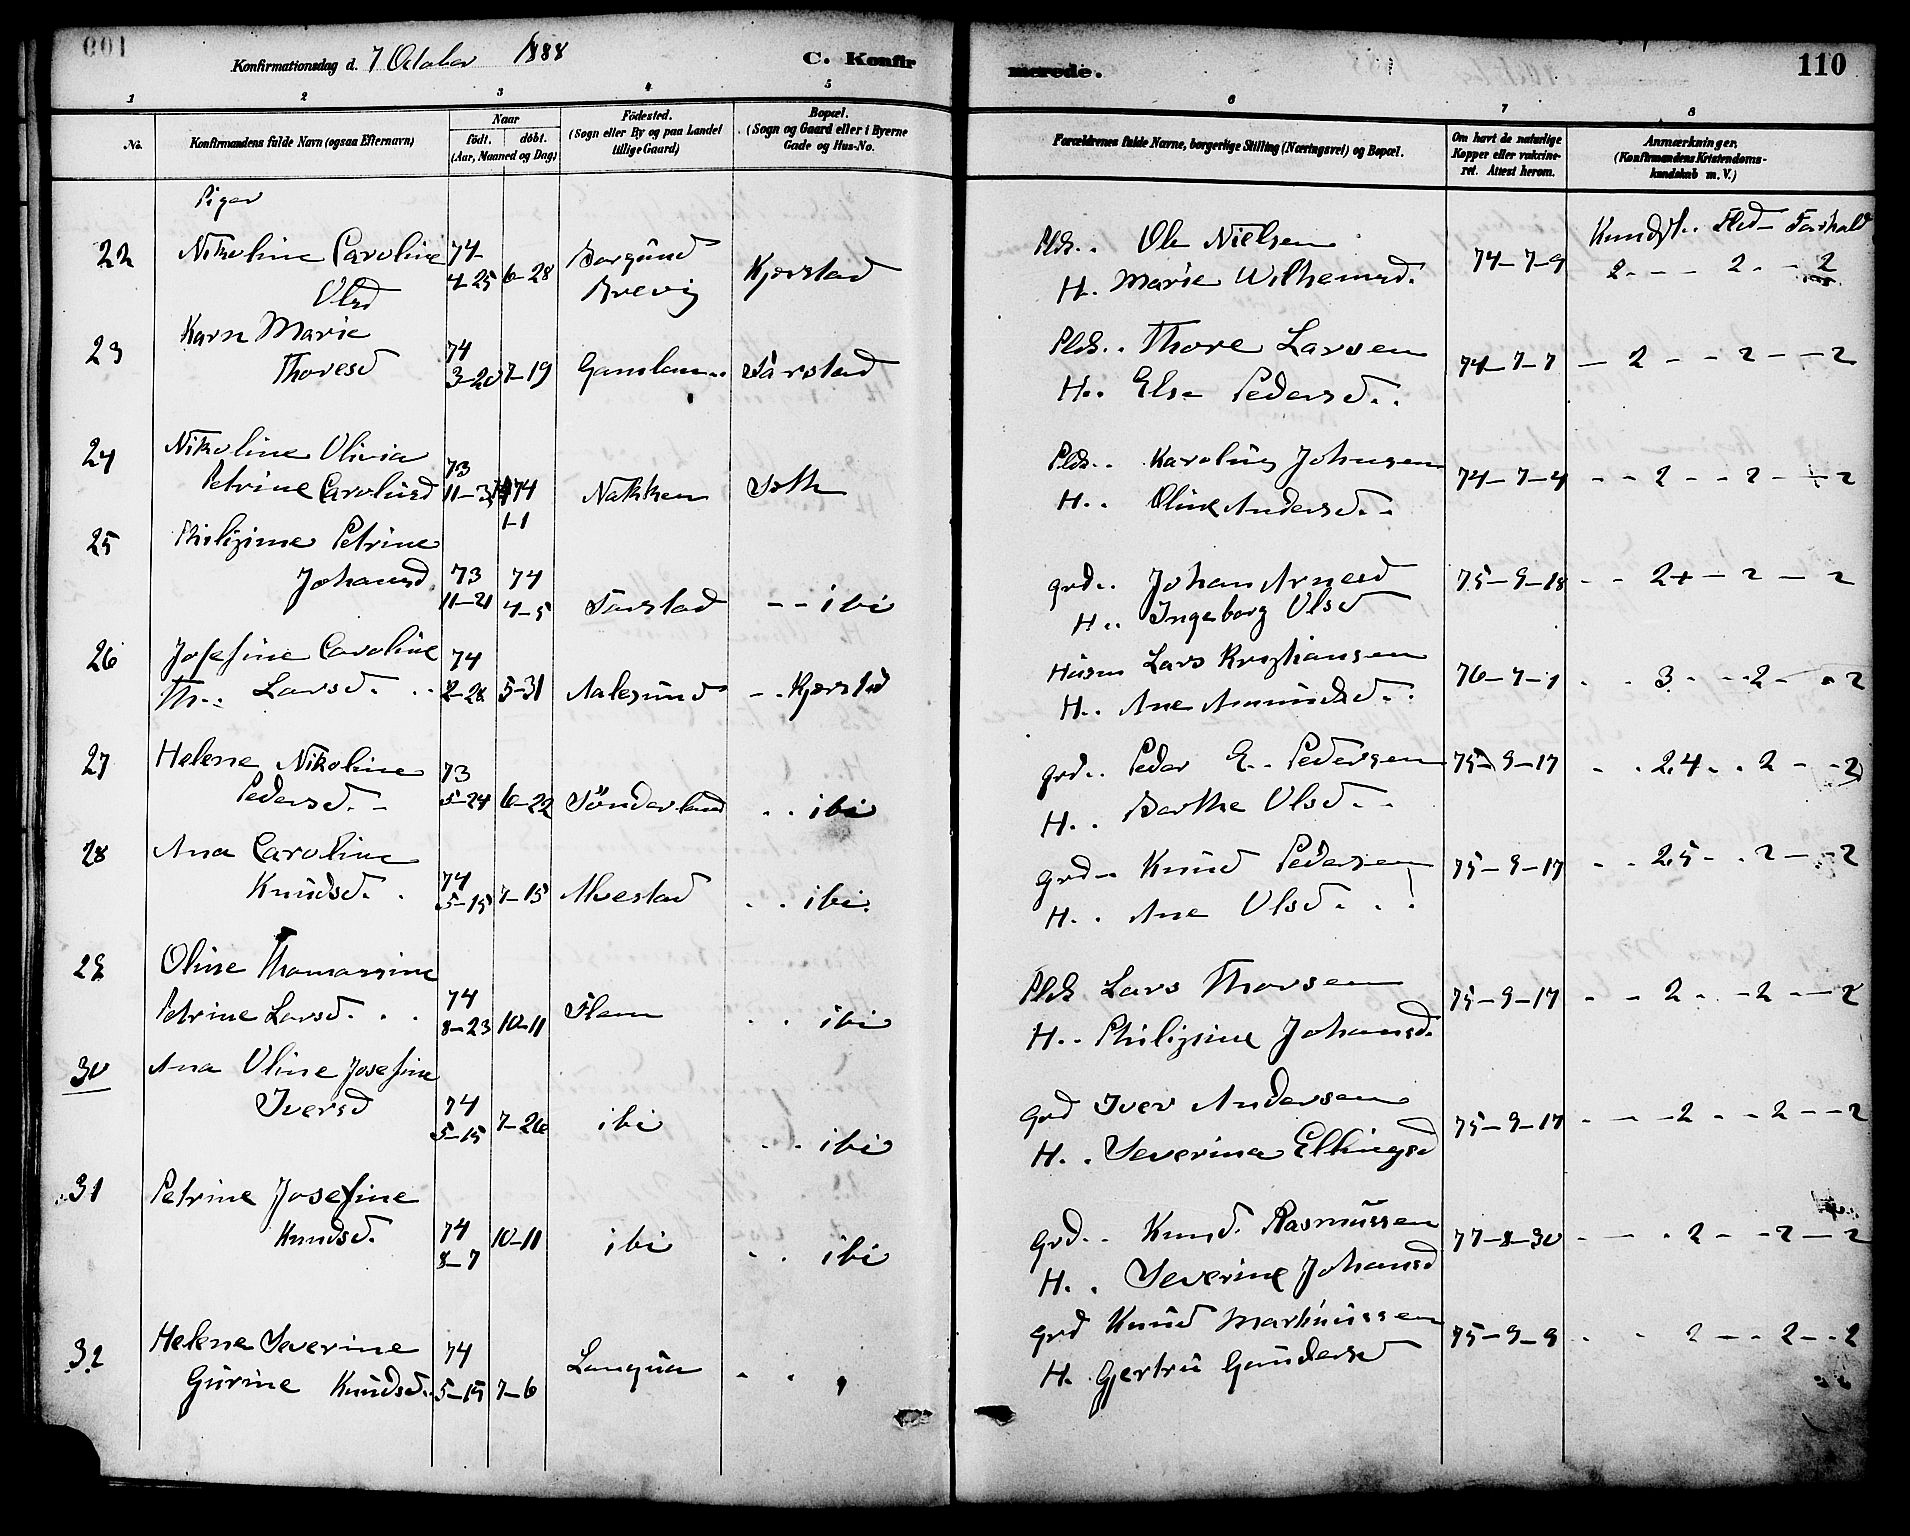 109
110
Konfirmationsdag d. 7 October 1888
C. Konfirmerede.
1 2 3 4 5 6 7 8
No.
Konfirmandens fulde Navn (ogsaa Efternavn)
Naar
født. døbt.
(Aar, Maaned og Dag)
Födested.
(Sogn eller By og paa Landet
tillige Gaard)
Bopæl.
(Sogn og Gaard eller i Byerne
Gade og Hus-No.
Forældrenes fulde Navne, borgerlige Stilling (Næringsvei) og Bopæl.
Om havt de naturlige
Kopper eller vakcineret. Attest herom.
Anmærkninger.
(Konfirmandens Kristendomskundskab m. V.)
Piger
Kundsk. Flid Forhold
22 Nikoline Caroline Olsd 74 4-25 6-28 Borgund Brevig Kjerstad Plds.. Ole Nielsen H. Marie Wilhemsd. 74-7-9 2 - - 2 - - 2
23 Karn Marie Thoresd 74 3-20 7-19 Gamlem.. Plds.. Thore Larsen H.. Else Pedersd.. 74-7-7 - 2 - - 2 - - 2
24 Nikoline Olivia Petrine Carolusd 73 74 1-1 Nakken Plds.. Karolius Johnsen H.. Oline Andersd.. 74-7-4 - - 2 - - 2 - - 2
25 Philipine Petrine Johansd. 73 11-21 74 4-5 Farstad - - ibi grd.. Johan Arnesd H.. Ingeborg Olsd 75-9-18 - - 2+ - 2 - 2
26 Josefine Caroline Th.. Larsd. .. 74 2-28 5-31 Aalesund - .. Kjerstad Husm Lars Kristiansen H.. Ane Amundsd.. 76-7-1 . . 3 . - - 2 - . 2
27 Helene Nikoline Pedersd. - 73 5-24 6-22 Sønderland . . ibi grd.. Peder E.. Pedersen H.. Berthe Olsd.. 75-9-17 - . 2.4 . . 2 - - 2
28 Ana Caroline Knudsd. . 74 5-15 7-15 Alvestad . . ibi. grd - Knud Pedersen H.. Ane Olsd. . . 75-9-17 - . 2.5 - . 2 - - 2
29 Oline Thomassine Petrine Larsd. . . 74 8-23 10-11 Flem . . ibi Plds Lars Thorsen H.. Philipine Johansd. 75-9-17 - - 2 . - 2 - - 2
30 Ana Oline Josefine Iversd 74 5-15 7-26 ibi . . ibi grd Iver Andersen H.. Severina Ellingsd 75-9-17 - - - 2 - . 2 - - 2
31 Petrine Josefine Knudsd. 74 8-7 10-11 ibi . . ibi grd.. Knud. Rasmussen H.. Severine Johansd 77-8-30 - - . 2 - - 2 - 2
32 Helene Severine Gurine Knudsd.. 74 5-15 7-6 - . , grd Knud Martinussen H. Gjertru Gundersd 75-9-9 - . 2 - - 2 - . 2